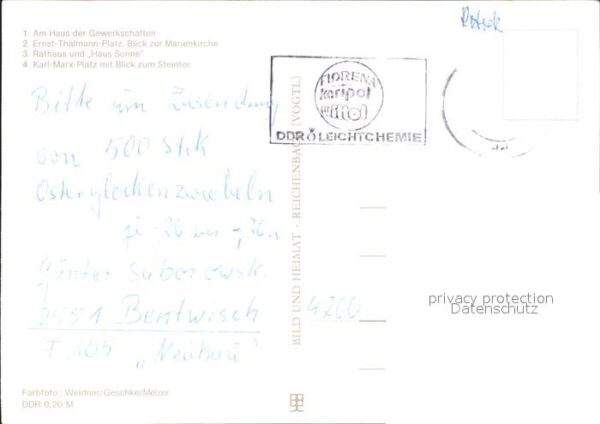 1. Am Haus der Gewerkschaften
2. Ernst-Thälmann-Platz, Blick zur Marienkirche
3. Rathaus und „Haus Sonne"
4. Karl-Marx-Platz mit Blick zum Steintor
FIORENA
karipol
wittol
DDR LEICHTCHEMIE
Bitte um Zusendung
von 500 Stck
Osterglockenzwiebeln
Günter
2551 Bentwisch
F 105 „Neubau"
4200
BILD UND HEIMAT · REICHENBACH (VOGTL)
privacy protection
Datenschutz
Farbfoto: Weidner/Geschke/Melzer
DDR 0,20 M